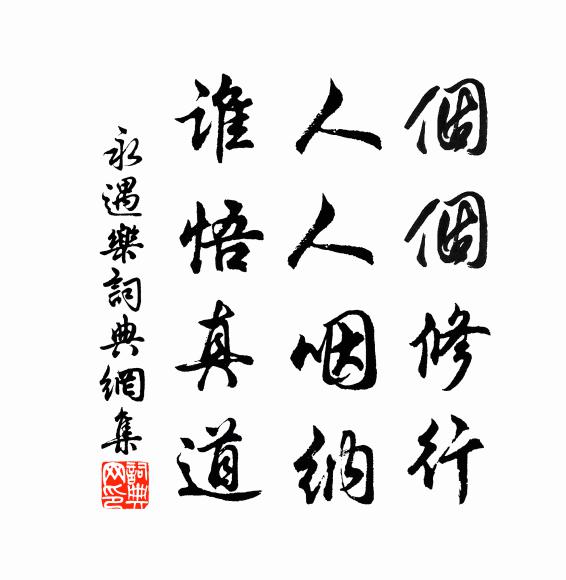 個個修行
人人咽納
誰悟真道
永遇樂詞典網集
詞典网印